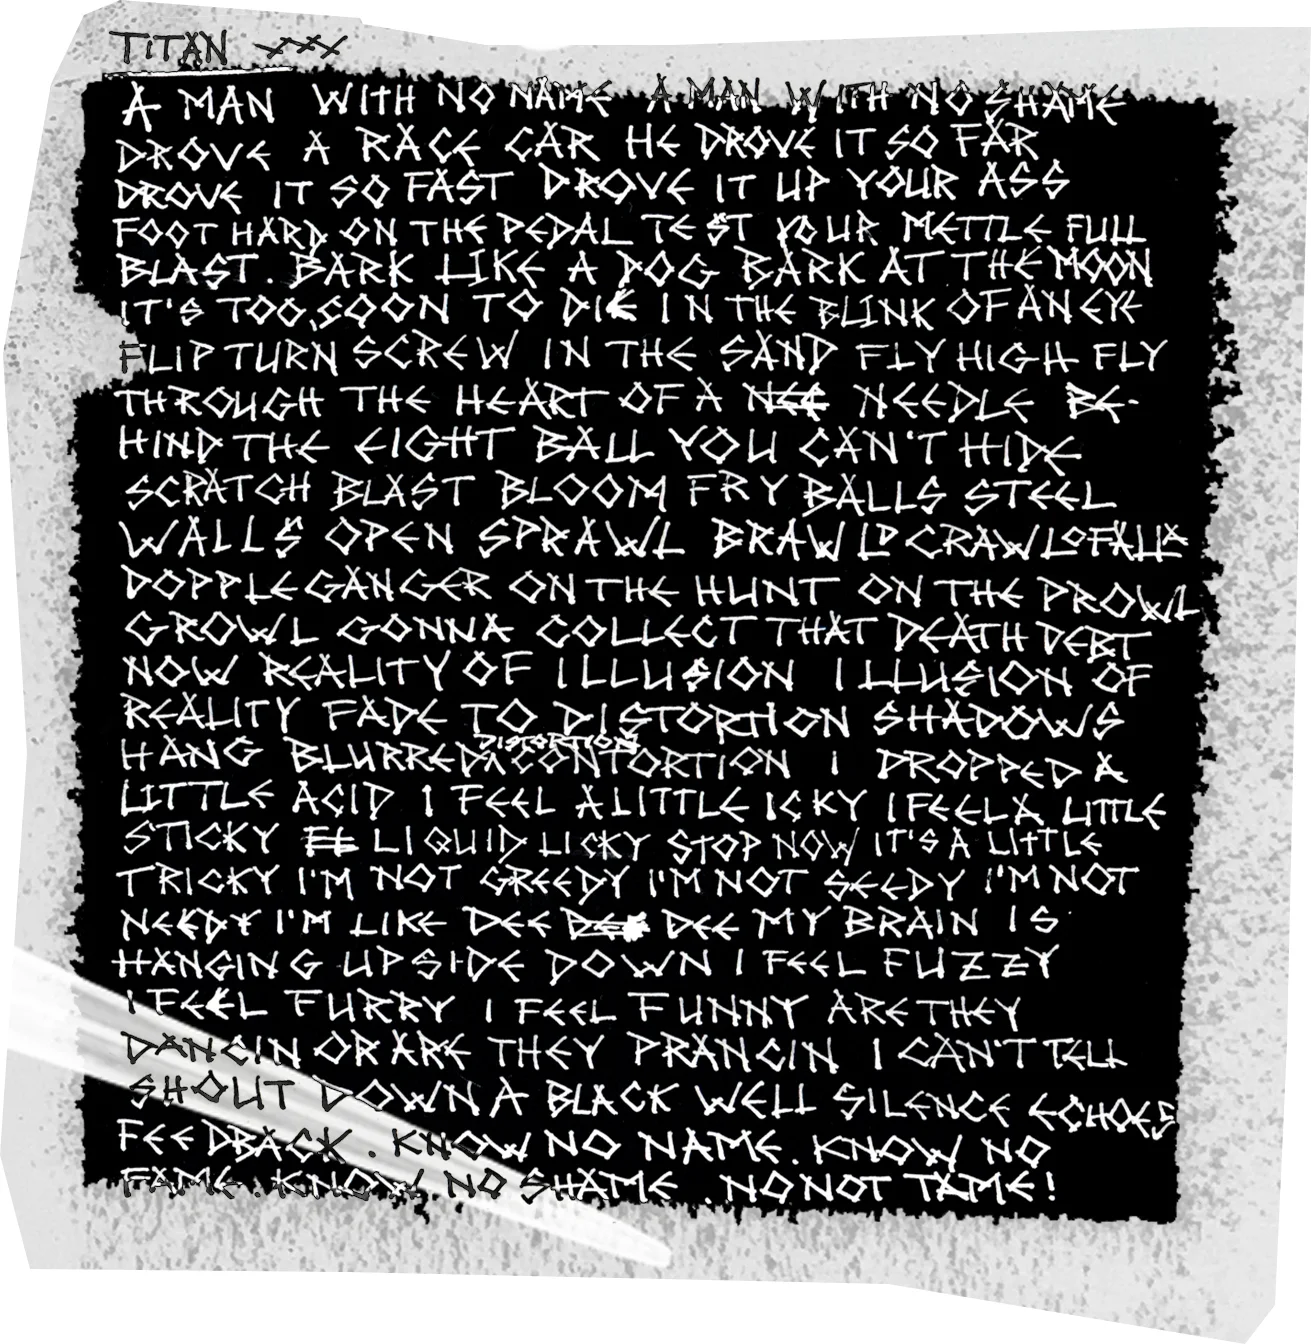 TITAN xxx
A MAN WITH NO NAME A MAN WITH NO SHAME
DROVE A RACE CAR HE DROVE IT SO FAR
DROVE IT SO FAST DROVE IT UP YOUR ASS
FOOT HARD ON THE PEDAL TEST YOUR METTLE FULL
BLAST. BARK LIKE A DOG BARK AT THE MOON
IT'S TOO SOON TO DIE IN THE BLINK OF AN EYE
FLIP TURN SCREW IN THE SAND FLY HIGH FLY
THROUGH THE HEART OF A NEE NEEDLE BE-
HIND THE EIGHT BALL YOU CAN'T HIDE
SCRATCH BLAST BLOOM FRY BALLS STEEL
WALLS OPEN SPRAWL BRAWL CRAWL OF ALL A
DOPPLEGANGER ON THE HUNT ON THE PROWL
GROWL GONNA COLLECT THAT DEATH DEBT
NOW REALITY OF ILLUSION ILLUSION OF
REALITY FADE TO DISTORTION SHADOWS
HANG BLURRED DISTORTION CONTORTION I DROPPED A
LITTLE ACID I FEEL A LITTLE ICKY I FEEL A LITTLE
STICKY FE LIQUID LICKY STOP NOW IT'S A LITTLE
TRICKY I'M NOT GREEDY I'M NOT SEEDY I'M NOT
NEEDY I'M LIKE DEE DEE DEE MY BRAIN IS
HANGING UPSIDE DOWN I FEEL FUZZY
I FEEL FURRY I FEEL FUNNY ARE THEY
DANCIN OR ARE THEY PRANCIN I CAN'T TELL
SHOUT DOWN A BLACK WELL SILENCE ECHOES
FEEDBACK. KNOW NO NAME. KNOW NO
FAME. KNOW NO SHAME. NO NOT TAME!